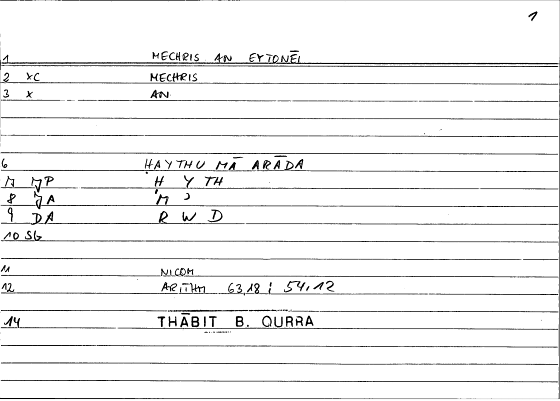 1
1 MECHRIS AN EYTONĒI
2 xC MECHRIS
3 x AN
6 ḤAYTHU MĀ ARĀDA
7 JP Ḥ Y TH
8 JA M ʾ
9 DA R W D
10 SG
11 NICOM
12 ARITHM 63,18 ; 54,12
14 THĀBIT B. QURRA